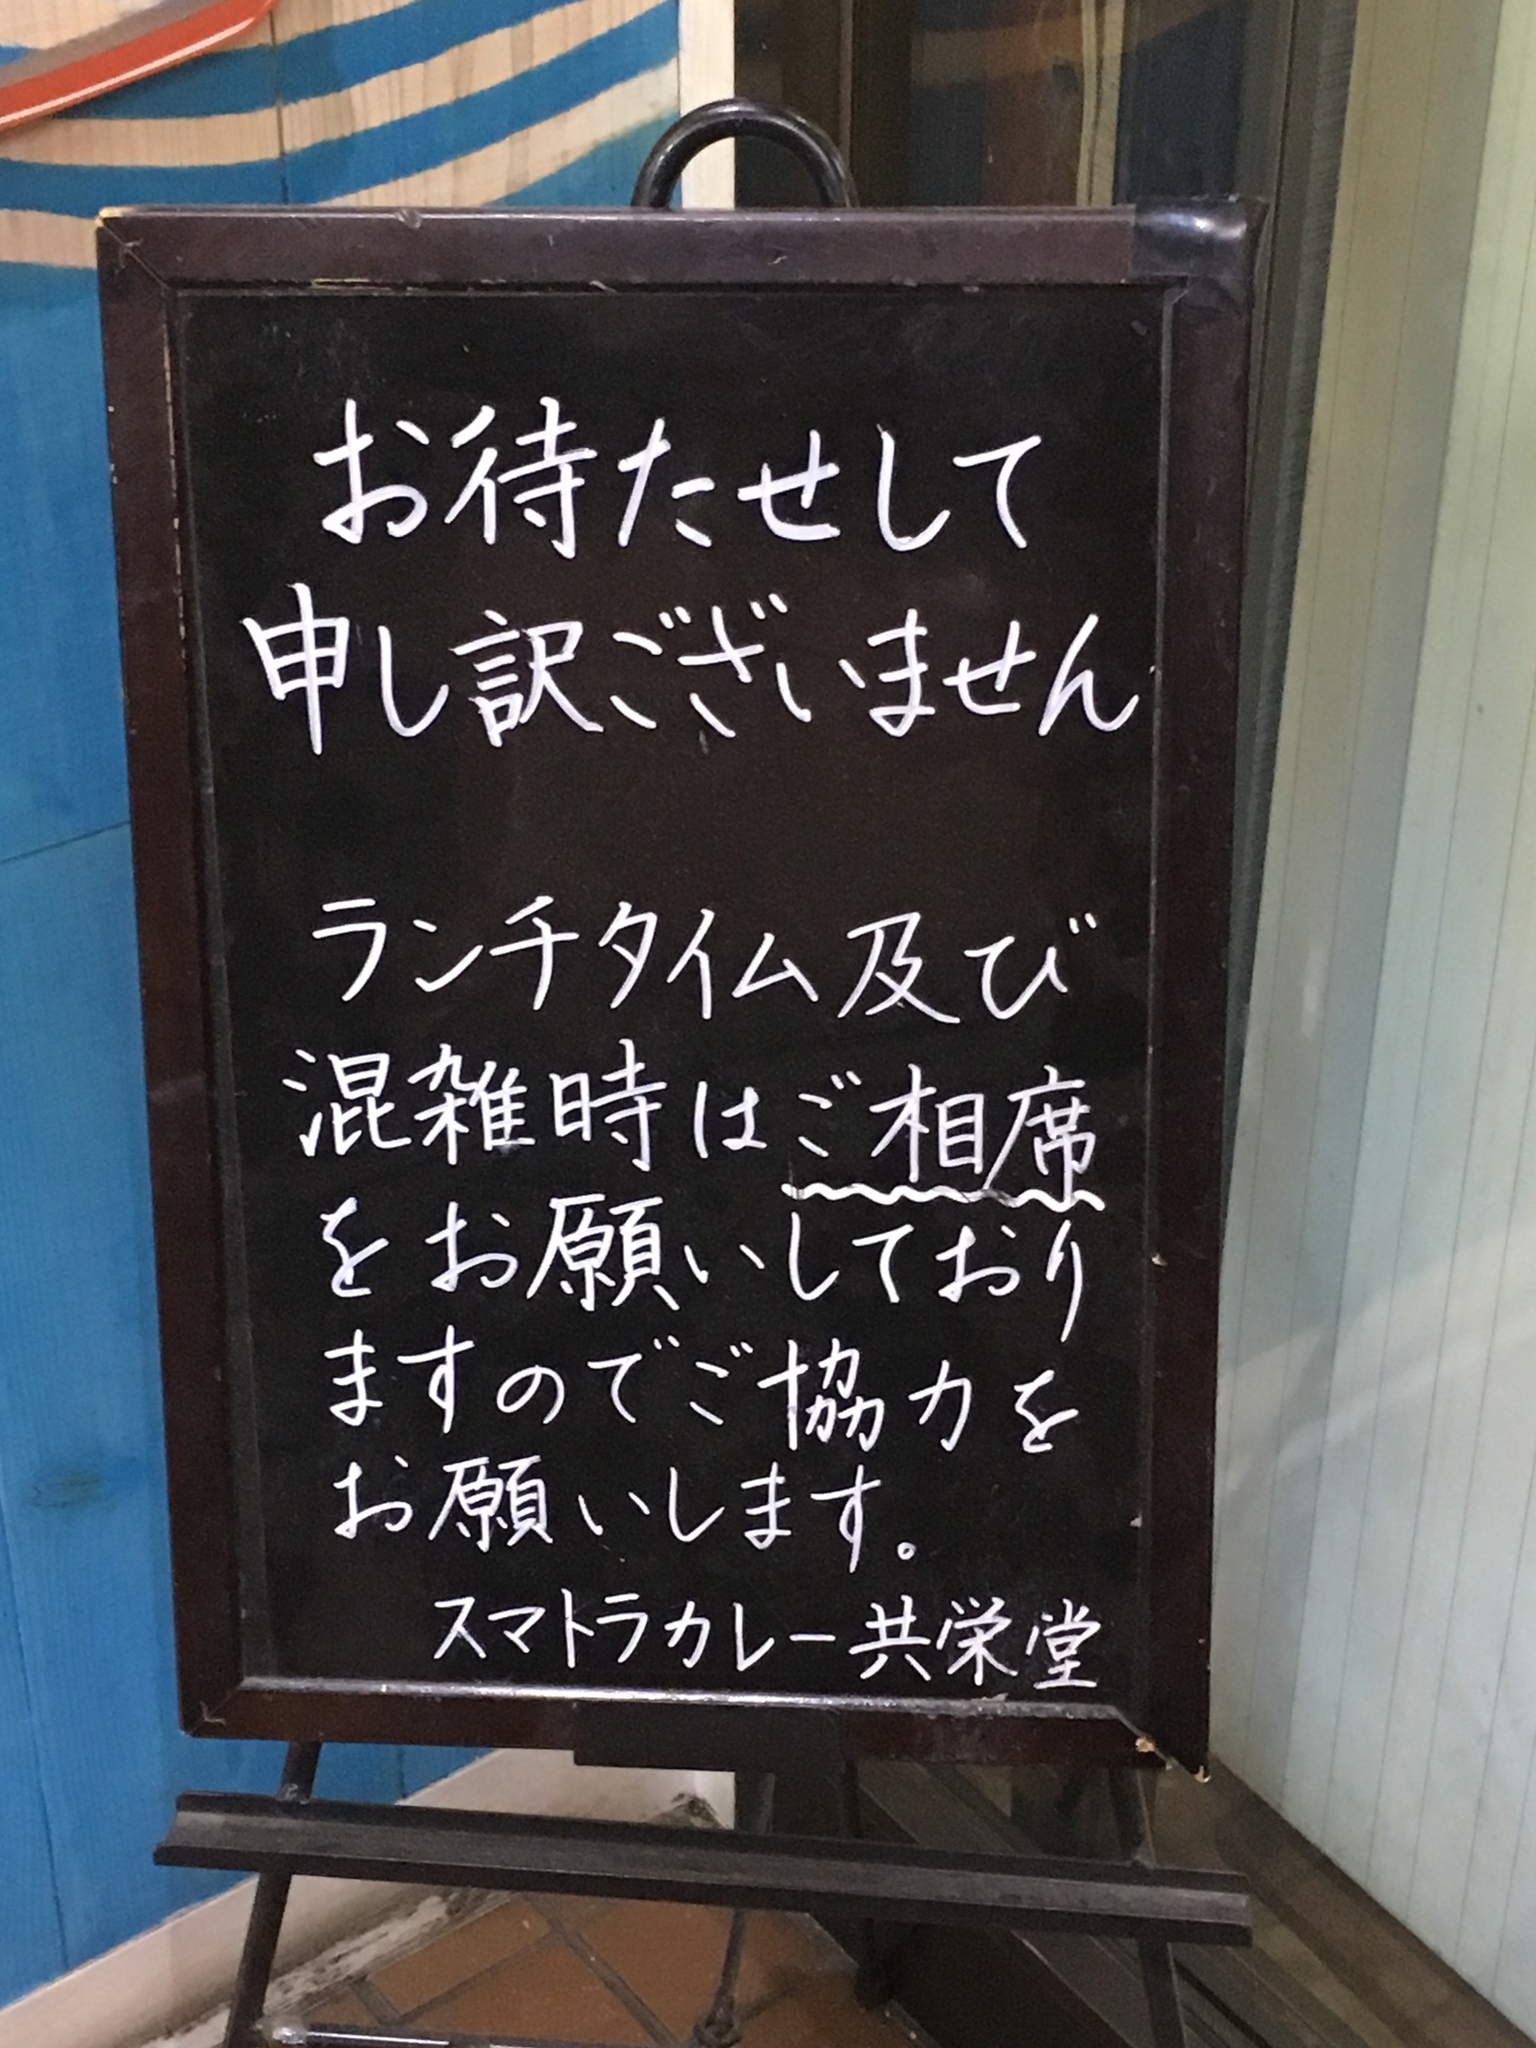 お待たせして
申し訳ございません
ランチタイム及び
混雑時はご相席
をお願いしており
ますのでご協力を
お願いします。
スマトラカレー共栄堂